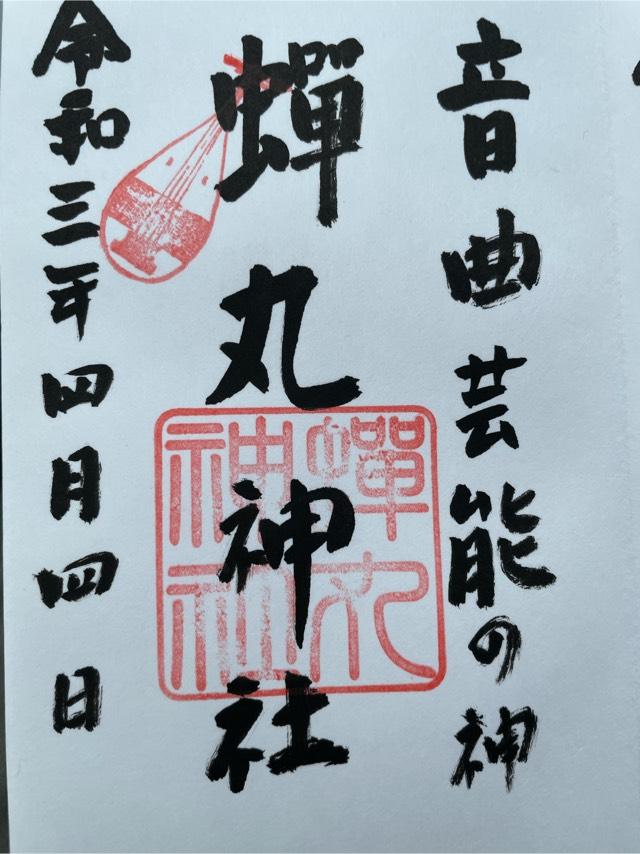 音曲芸能の神
蟬丸神社
令和三年四月四日
蟬丸
神社